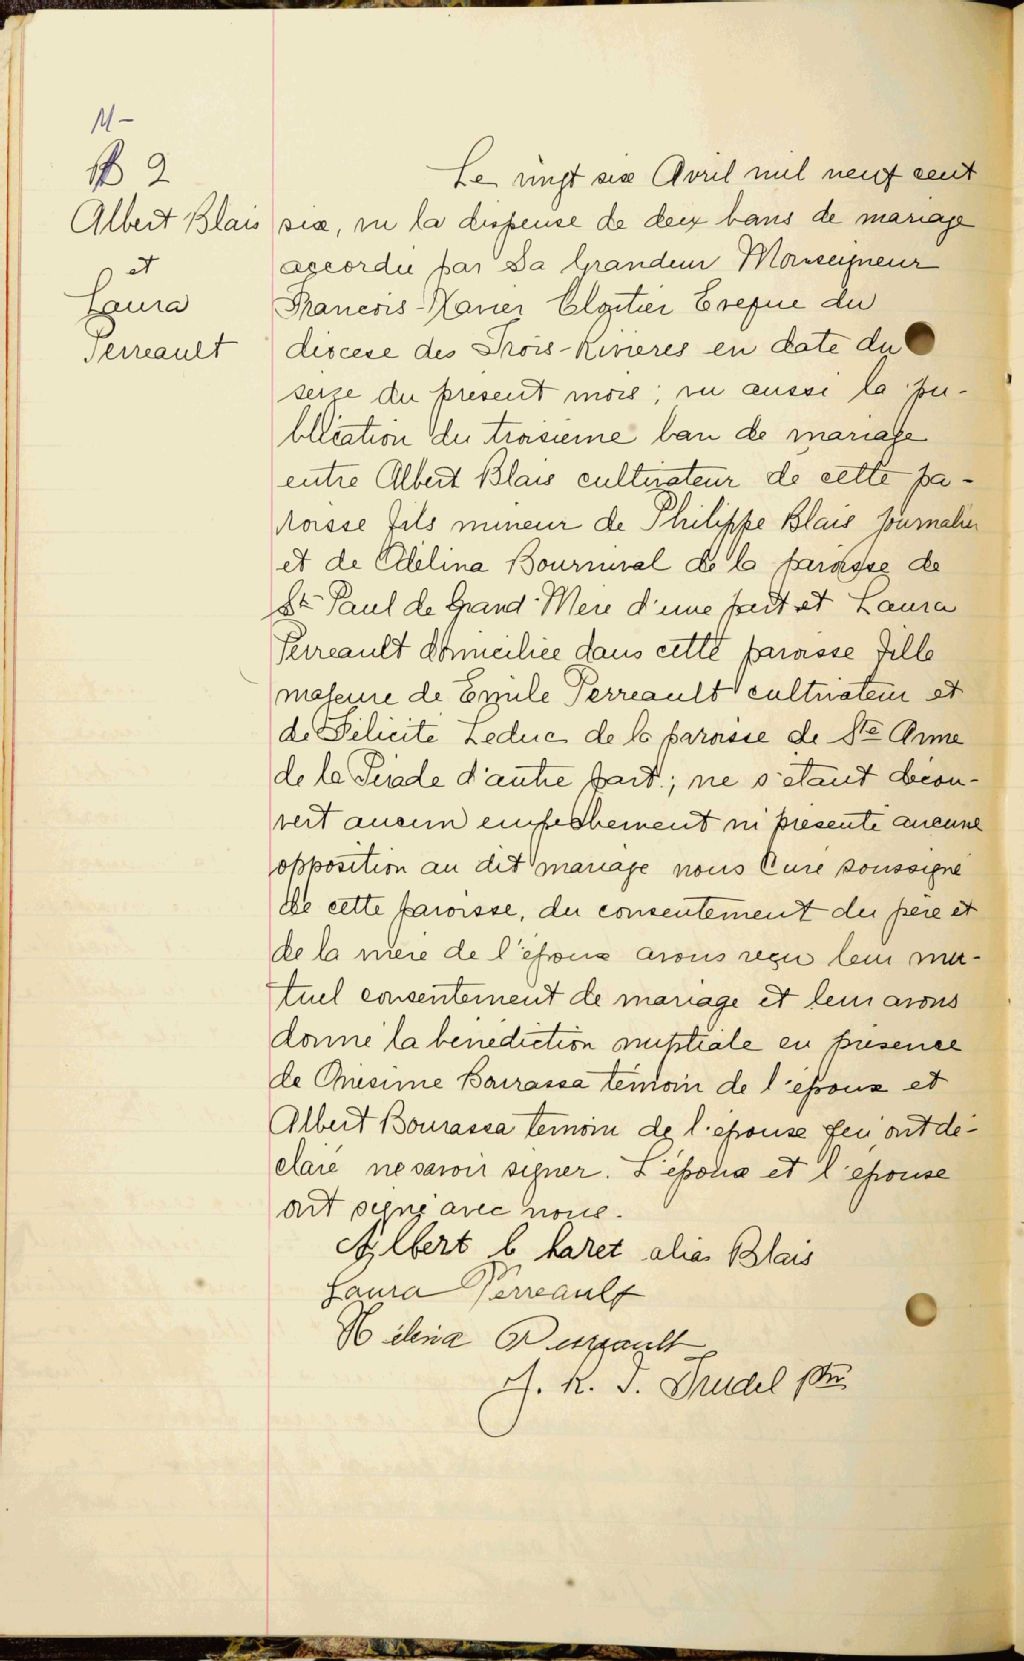 M-
B 2
Albert Blais
et
Laura
Perreault
Le vingt six Avril mil neuf cent
six, vu la dispense de deux bans de mariage
accordée par Sa Grandeur Monseigneur
Francois-Xavier Cloutier Eveque du
diocese des Trois-Rivieres en date du
seize du présent mois; vu aussi la pu-
blication du troisieme ban de mariage
entre Albert Blais cultivateur de cette pa-
roisse fils mineur de Philippe Blais journalier
et de Adélina Bournival de la paroisse de
St Paul de Grand-Mere d'une part et Laura
Perreault domiciliée dans cette paroisse fille
majeure de Emile Perreault cultivateur et
de Félicité Leduc de la paroisse de Ste Anne
de la Pérade d'autre part; ne s'étant décou-
vert aucun empechement ni présenté aucune
opposition au dit mariage nous Curé soussigné
de cette paroisse, du consentement du père et
de la mère de l'époux avons reçu leur mu-
tuel consentement de mariage et leur avons
donné la bénédiction nuptiale en présence
de Onésime Bourassa témoin de l'époux et
Albert Bourassa temoin de l'épouse qui ont dé-
claré ne savoir signer. L'époux et l'épouse
ont signé avec nous.
Albert C haret alias Blais
Laura Perreault
Hélena Perreault
J. R. T. Trudel ptre